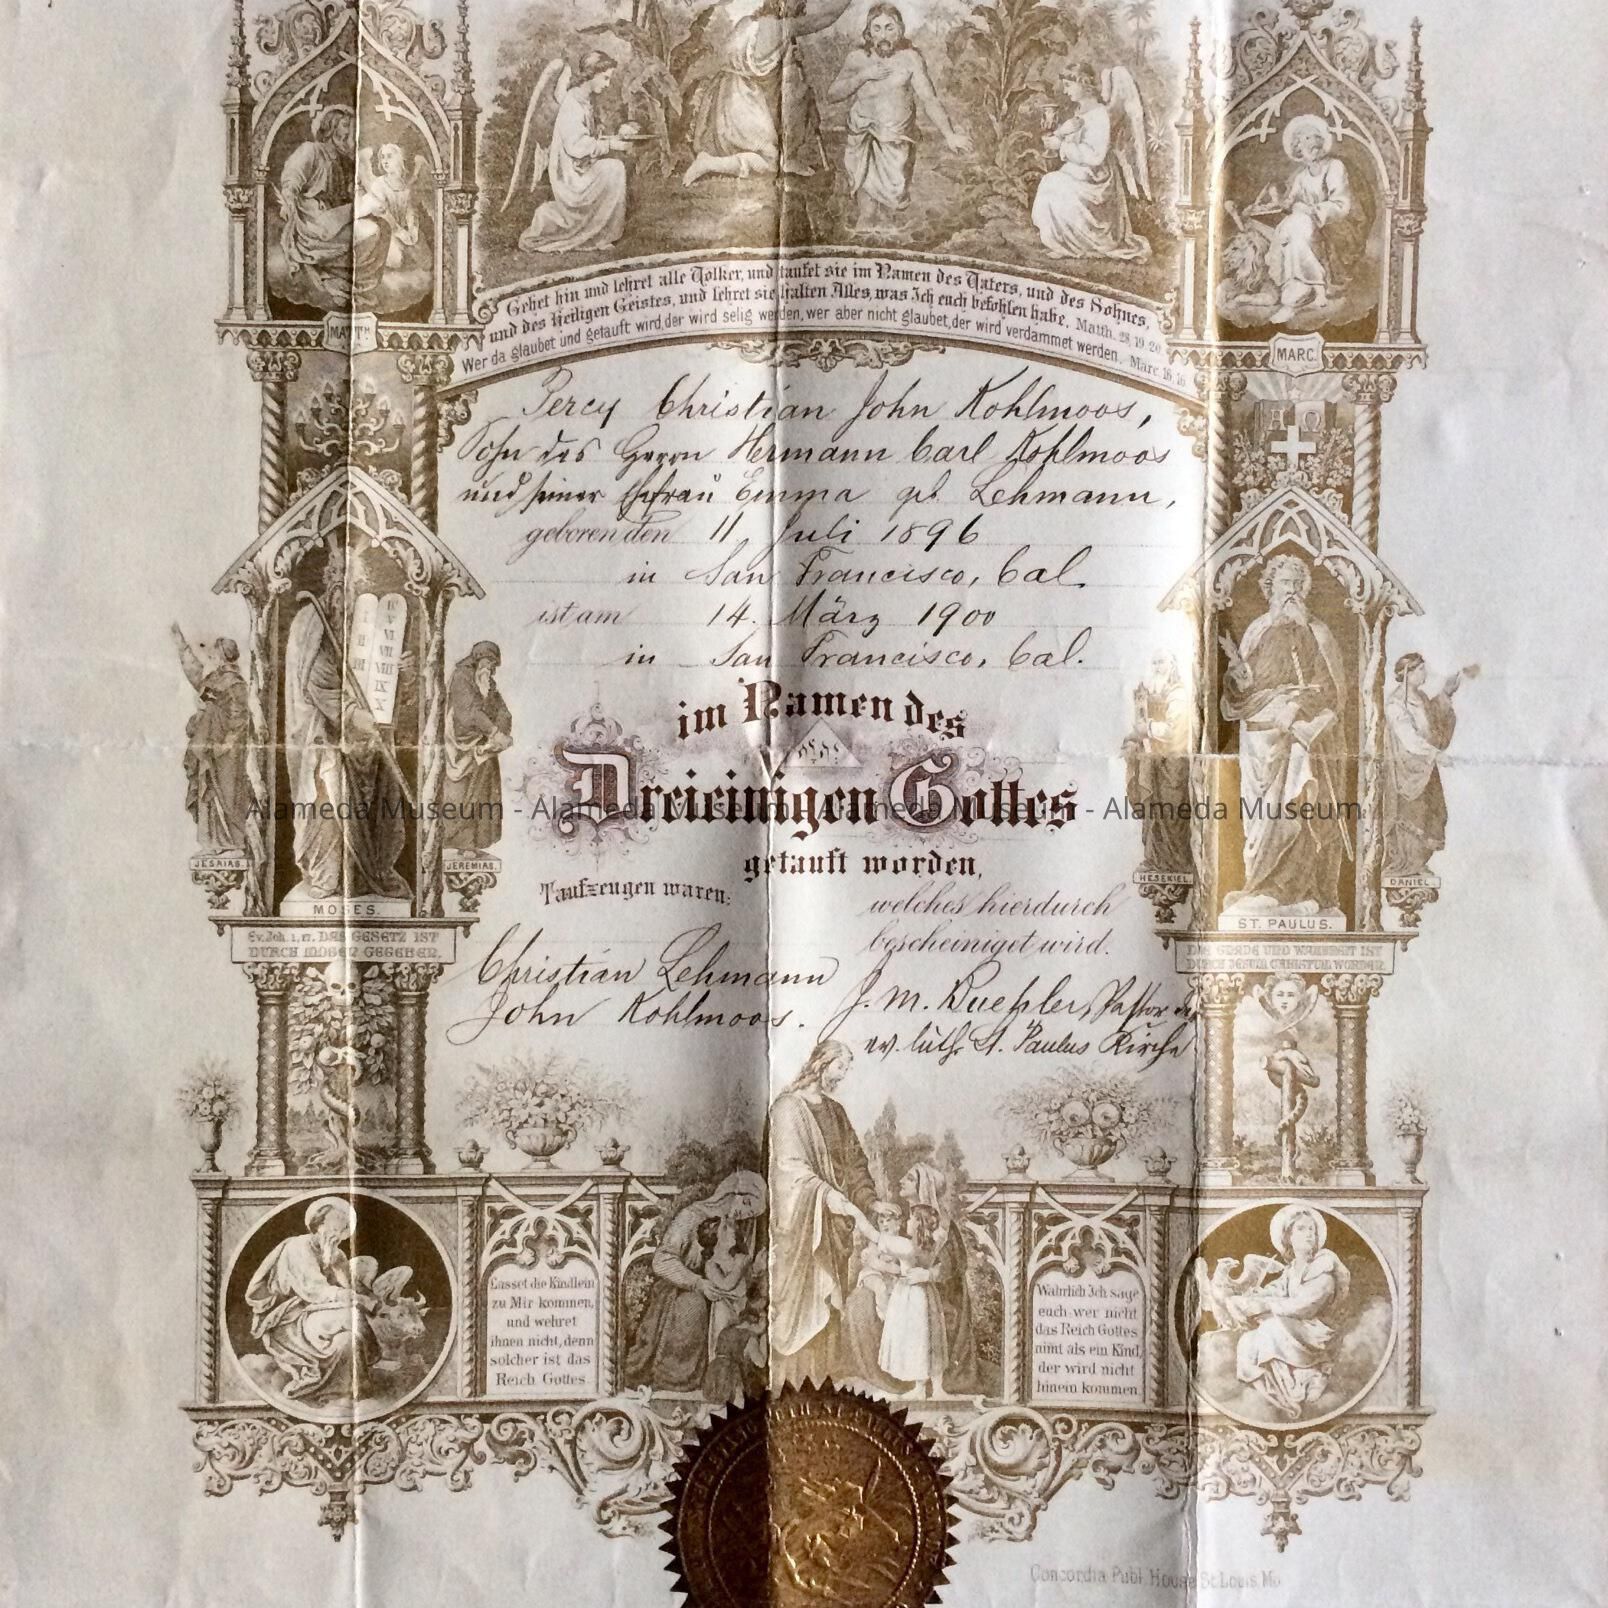 Gehet hin und lehret alle Völker, und taufet sie im Namen des Vaters, und des Sohnes,
und des Heiligen Geistes, und lehret sie halten Alles, was Ich euch befohlen habe. Matth. 28, 19. 20.
Wer da glaubet und getauft wird, der wird selig werden, wer aber nicht glaubet, der wird verdammet werden. Marc. 16, 16.
MATTH.
MARC.
Α Ω
Percy Christian John Kohlmoos,
Sohn des Herrn Hermann Carl Kohlmoos
und seiner Ehefrau Emma geb. Lehmann,
geboren den 11. Juli 1896
in San Francisco, Cal.
ist am 14. März 1900
in San Francisco, Cal.
im Namen des
Dreieinigen Gottes
getauft worden,
Alameda Museum - Alameda Museum - Alameda Museum - Alameda Museum
JESAIAS.
JEREMIAS.
HESEKIEL
DANIEL.
MOSES.
ST. PAULUS.
Ev. Joh. 1, 17. DAS GESETZ IST
DURCH MOSEN GEGEBEN.
DIE GNADE UND WAHRHEIT IST
DURCH JESUM CHRISTUM WORDEN.
Taufzeugen waren:
Christian Lehmann
John Kohlmoos.
welches hierdurch
bescheiniget wird.
J. M. Buehler, Pastor der
ev. luth. St. Paulus Kirche
Lasset die Kindlein
zu Mir kommen,
und wehret
ihnen nicht, denn
solcher ist das
Reich Gottes.
Wahrlich Ich sage
euch: wer nicht
das Reich Gottes
nimt als ein Kind,
der wird nicht
hinein kommen.
Concordia Publ. House St. Louis, Mo.